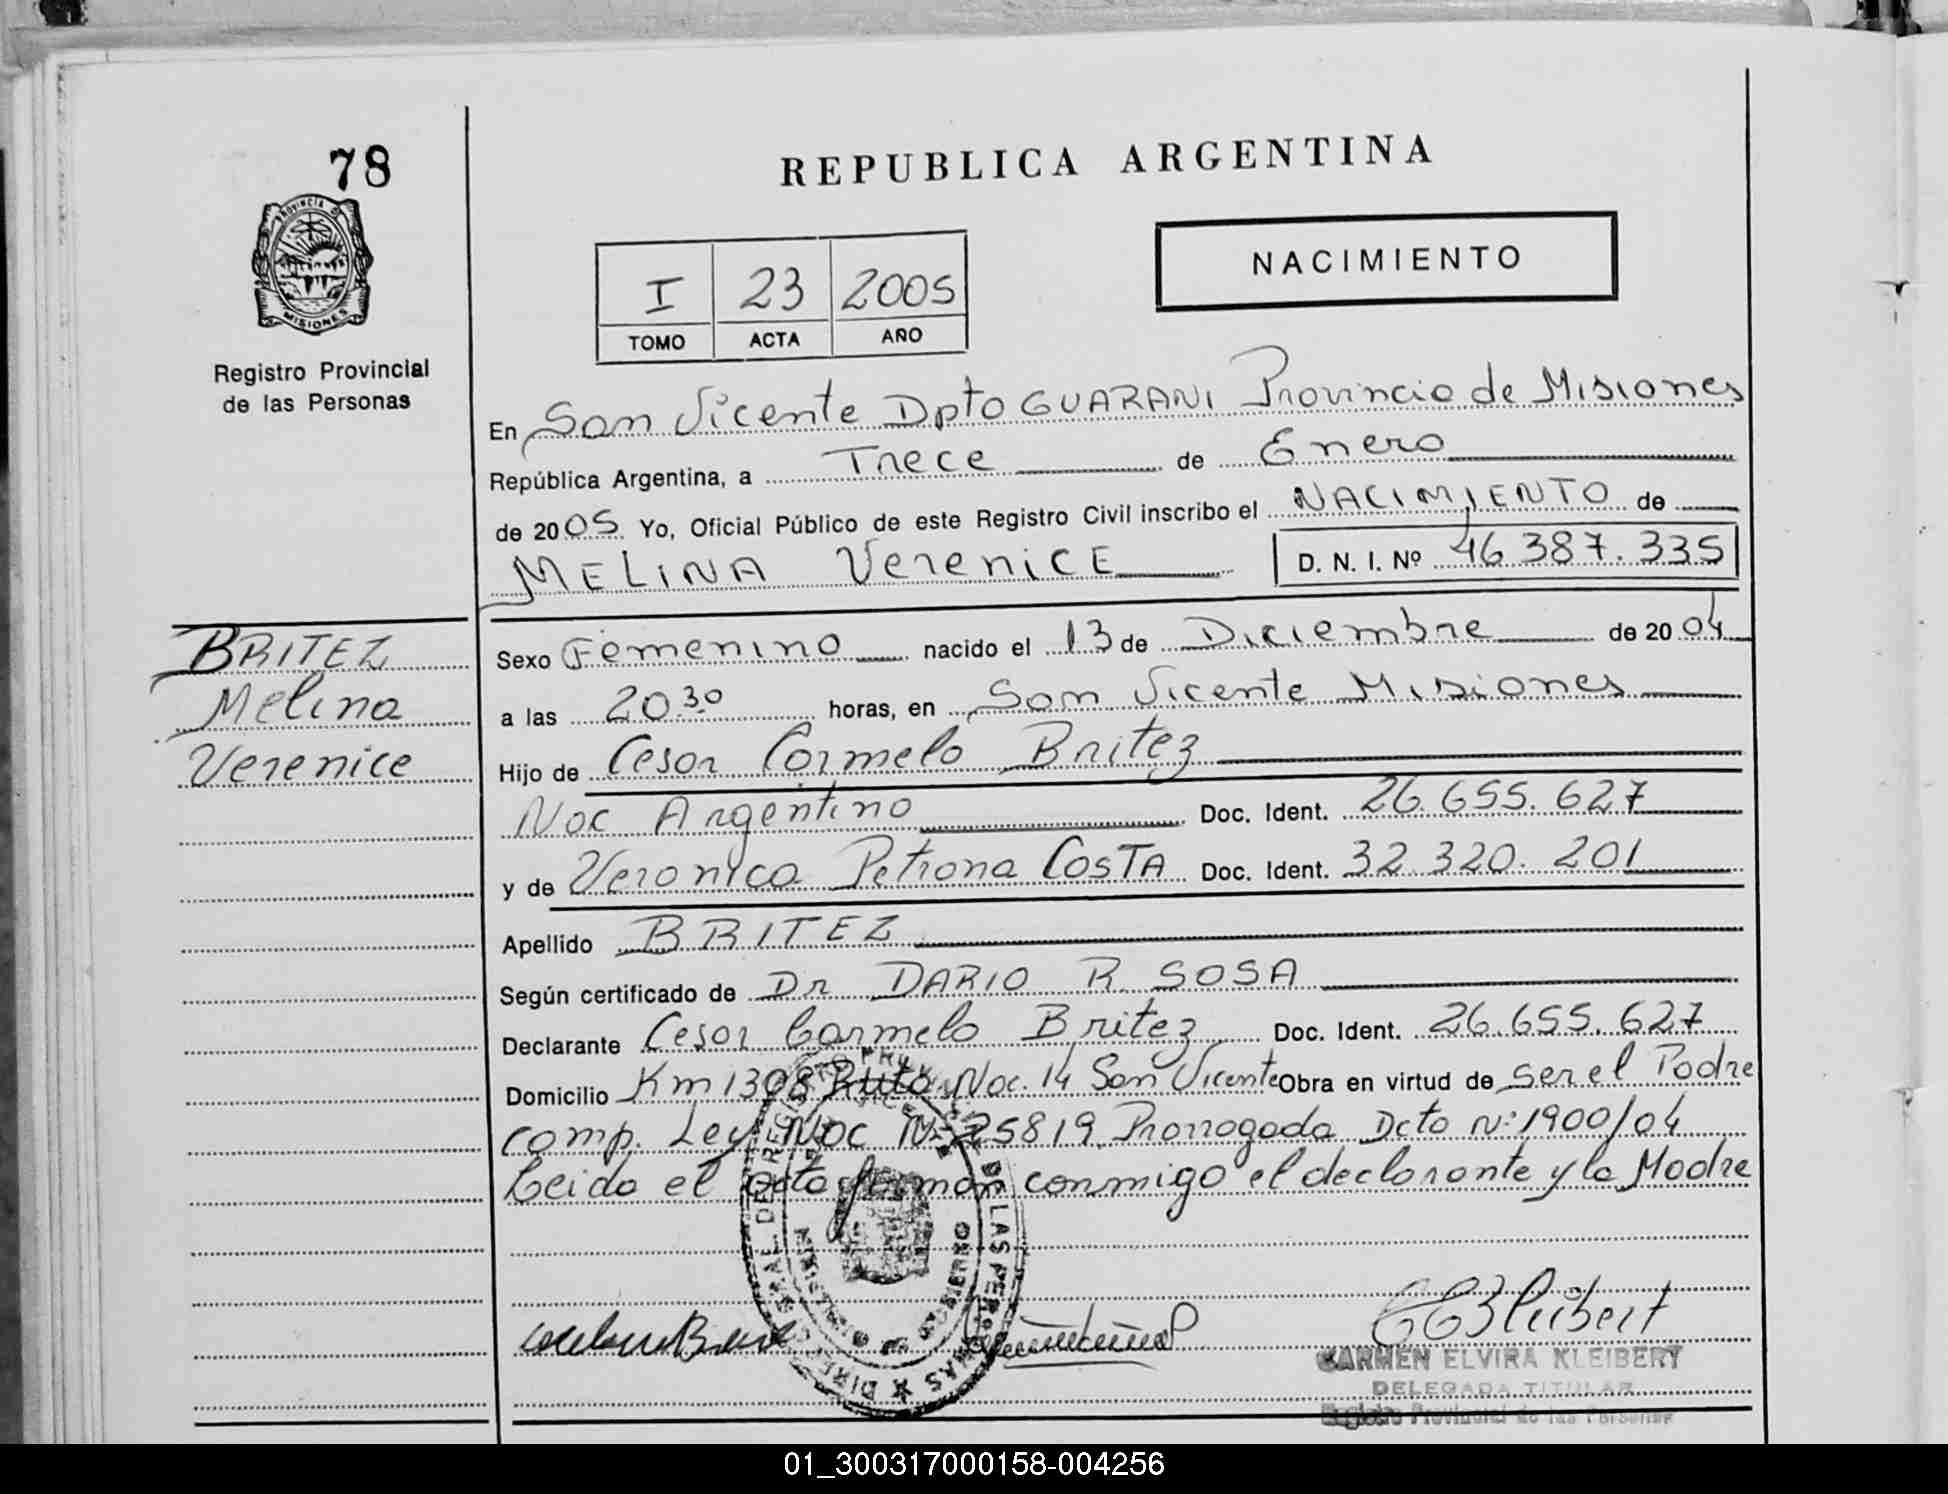 78
PROVINCIA DE
MISIONES
Registro Provincial
de las Personas
REPUBLICA ARGENTINA
NACIMIENTO
I 23 2005
TOMO ACTA AÑO
En San Vicente Dpto GUARANI Provincia de Misiones
República Argentina, a Trece de Enero
de 2005 Yo, Oficial Público de este Registro Civil inscribo el NACIMIENTO de
MELINA VereniCE D. N. I. Nº 46.387.335
BRITEZ
Melina
Verenice
Sexo Femenino nacido el 13 de Diciembre de 2004
a las 20 30 horas, en San Vicente Misiones
Hijo de Cesar Carmelo Britez
Nac Argentino Doc. Ident. 26.655.627
y de Veronica Petrona COSTA Doc. Ident. 32.320.201
Apellido BRITEZ
Según certificado de Dr DARIO R. SOSA
Declarante Cesar Carmelo Britez Doc. Ident. 26.655.627
Domicilio Km 1308 Ruta Nac. 14 San Vicente Obra en virtud de ser el Padre
comp. Ley Nac Nº 25819 Prorrogada Dcto Nº 1900/04
Leida el acta firman conmigo el declarante y la Madre
CARMEN ELVIRA KLEIBERT
DELEGADA TITULAR
Registro Provincial de las Personas
01_300317000158-004256